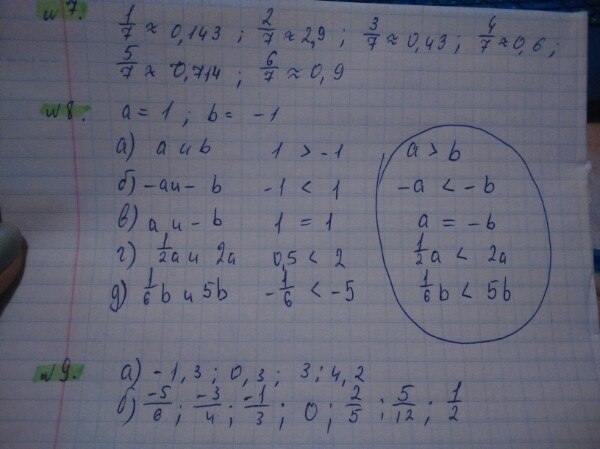 №7. 1/7 ≈ 0,143 ; 2/7 ≈ 2,9 ; 3/7 ≈ 0,43 ; 4/7 ≈ 0,6 ;
5/7 ≈ 0,714 ; 6/7 ≈ 0,9
№8. a = 1 ; b = -1
а) a и b 1 > -1 a > b
б) -a и - b -1 < 1 -a < -b
в) a и - b 1 = 1 a = -b
г) 1/2a и 2a 0,5 < 2 1/2a < 2a
д) 1/6b и 5b -1/6 < -5 1/6b < 5b
№9. а) -1,3 ; 0,3 ; 3 ; 4,2
б) -5/6 ; -3/4 ; -1/3 ; 0 ; 2/5 ; 5/12 ; 1/2